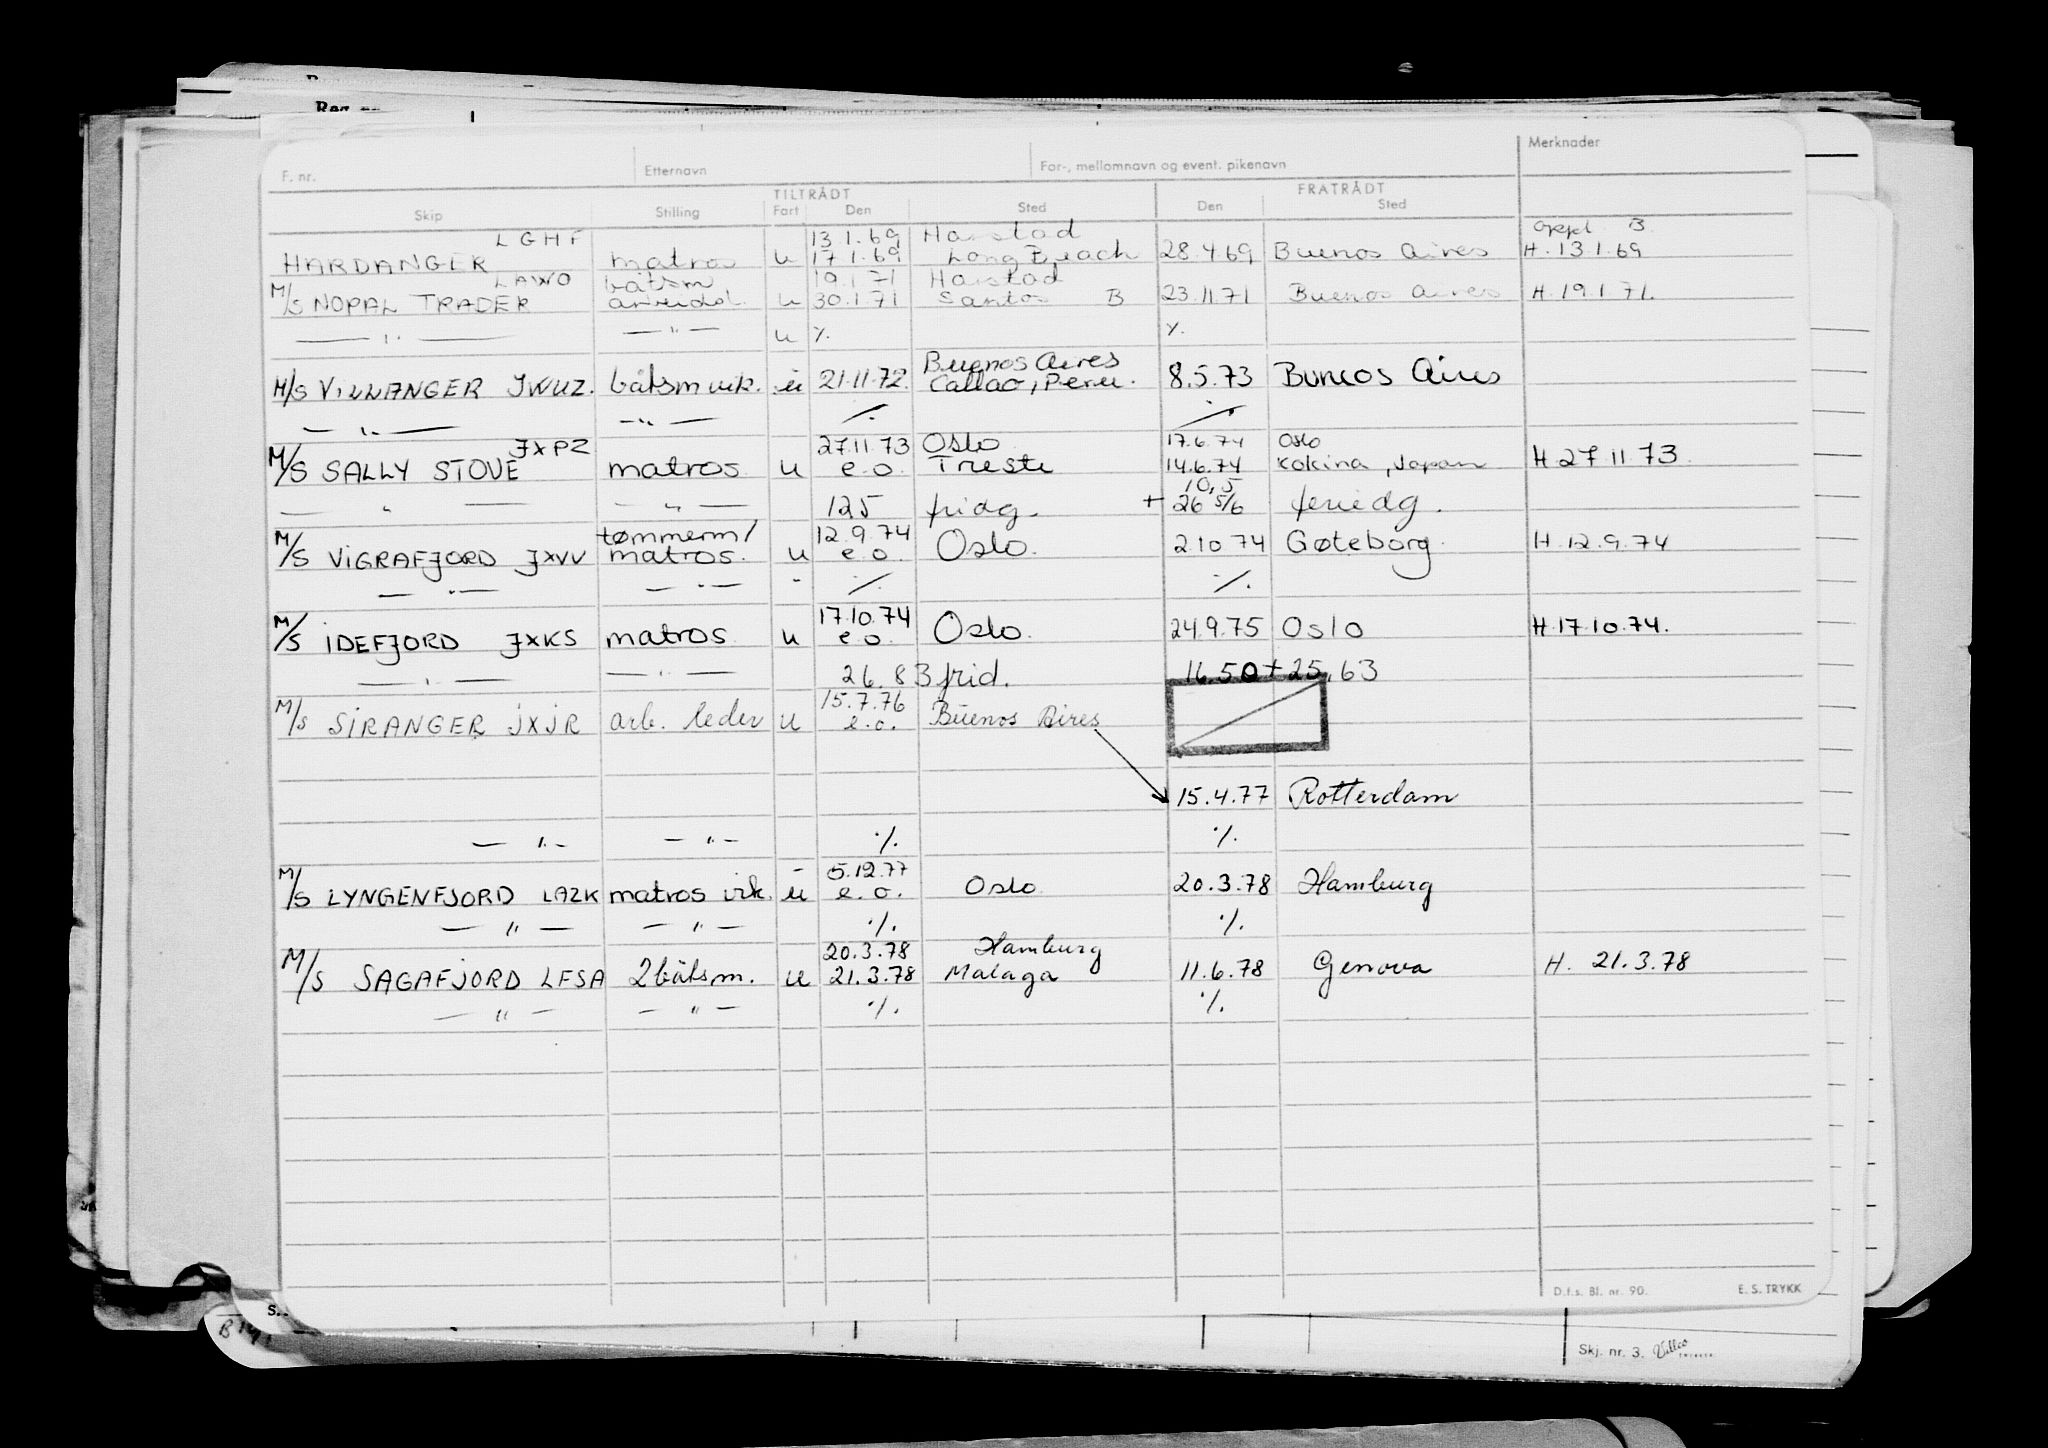 F. nr. Etternavn For-, mellomnavn og event. pikenavn Merknader
TILTRÅDT FRATRÅDT
Skip Stilling Fart Den Sted Den Sted
LGHF 13.1.69 Harstad oppl B
HARDANGER matros u 17.1.69 Long Beach 28.4.69 Buenos Aires H.13.1.69
LAWO båtsm 19.1.71 Harstad
M/S NOPAL TRADER arbeidsl. u 30.1.71 Santos B 23.11.71 Buenos Aires H.19.1.71.
— " — — " — u %. %.
Buenos Aires
M/S VILLANGER JWUZ. båtsm vik. u 21.11.72. Callao, Peru. 8.5.73 Buneos Aires
— " — — " — %. %.
JXPZ 27.11.73 Oslo 17.6.74 Oslo
M/S SALLY STOVE matros u e.o. Treste 14.6.74 Kokina, Japan H 27 11 73.
10,5
— " — — " — 125 fridg. + 26 5/6 feriedg.
tømmerm/ 12.9.74
M/S VIGRAFJORD JXVV matros. u e.o. Oslo. 2.10.74 Gøteborg. H.12.9.74
— " — — " — " %. %.
17.10.74
M/S IDEFJORD JXKS matros u e.o. Oslo. 24.9.75 Oslo H.17.10.74.
— " — — " — 26.83 frid. 16.50+25,63
15.7.76
M/S SIRANGER JXJR arb. leder u e.o. Buenos Aires
15.4.77 Rotterdam
— " — — " — %. %.
5.12.77
M/S LYNGENFJORD LAZK matros vik. u e.o. Oslo 20.3.78 Hamburg
— " — — " — %. %.
20.3.78 Hamburg
M/S SAGAFJORD LFSA 2båtsm. u 21.3.78 Malaga 11.6.78 Genova H. 21.3.78
— " — — " — %. %.
D.f.s. Bl. nr. 90. E. S. TRYKK
Skj. nr. 3.